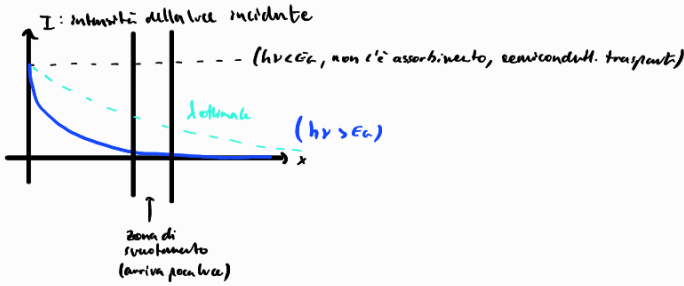 I: intensità della luce incidente
(hν<EG, non c'è assorbimento, semicondutt. trasparente)
λ ottimale
(hν>EG)
x
zona di
svuotamento
(arriva poca luce)